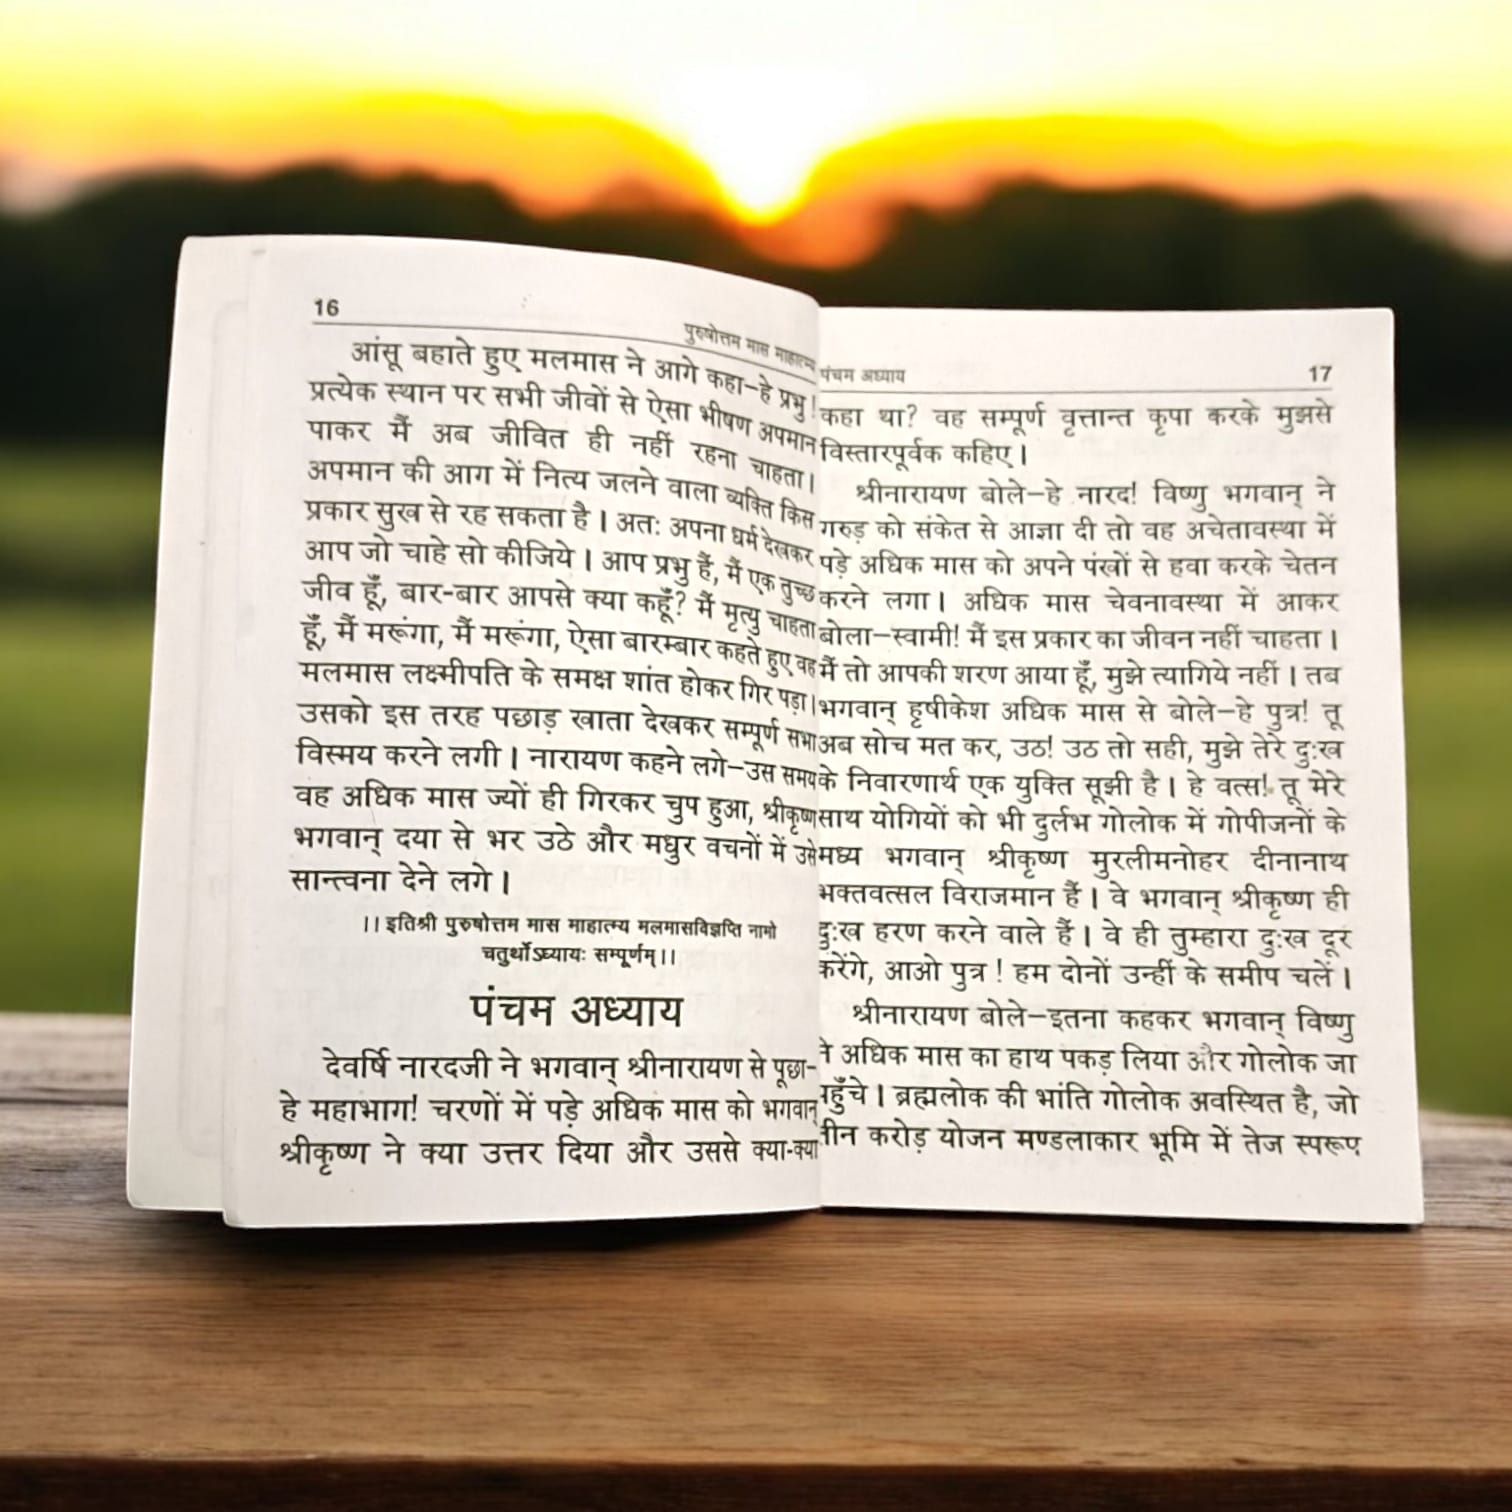 16
पुरुषोत्तम मास माहात्म्य
आंसू बहाते हुए मलमास ने आगे कहा–हे प्रभु !
प्रत्येक स्थान पर सभी जीवों से ऐसा भीषण अपमान
पाकर मैं अब जीवित ही नहीं रहना चाहता।
अपमान की आग में नित्य जलने वाला व्यक्ति किस
प्रकार सुख से रह सकता है । अतः अपना धर्म देखकर
आप जो चाहे सो कीजिये । आप प्रभु हैं, मैं एक तुच्छ
जीव हूँ, बार-बार आपसे क्या कहूँ? मैं मृत्यु चाहता
हूँ, मैं मरूंगा, मैं मरूंगा, ऐसा बारम्बार कहते हुए वह
मलमास लक्ष्मीपति के समक्ष शांत होकर गिर पड़ा।
उसको इस तरह पछाड़ खाता देखकर सम्पूर्ण सभा
विस्मय करने लगी । नारायण कहने लगे–उस समय
वह अधिक मास ज्यों ही गिरकर चुप हुआ, श्रीकृष्ण
भगवान् दया से भर उठे और मधुर वचनों में उसे
सान्त्वना देने लगे ।
।। इतिश्री पुरुषोत्तम मास माहात्म्य मलमासविज्ञप्ति नामो
चतुर्थोऽध्यायः सम्पूर्णम् ।।
पंचम अध्याय
देवर्षि नारदजी ने भगवान् श्रीनारायण से पूछा-
हे महाभाग! चरणों में पड़े अधिक मास को भगवान्
श्रीकृष्ण ने क्या उत्तर दिया और उससे क्या-क्या
पंचम अध्याय
17
कहा था? वह सम्पूर्ण वृत्तान्त कृपा करके मुझसे
विस्तारपूर्वक कहिए ।
श्रीनारायण बोले–हे नारद! विष्णु भगवान् ने
गरुड़ को संकेत से आज्ञा दी तो वह अचेतावस्था में
पड़े अधिक मास को अपने पंखों से हवा करके चेतन
करने लगा । अधिक मास चेवनावस्था में आकर
बोला–स्वामी! मैं इस प्रकार का जीवन नहीं चाहता ।
मैं तो आपकी शरण आया हूँ, मुझे त्यागिये नहीं । तब
भगवान् हृषीकेश अधिक मास से बोले–हे पुत्र! तू
अब सोच मत कर, उठ! उठ तो सही, मुझे तेरे दुःख
के निवारणार्थ एक युक्ति सूझी है । हे वत्स! तू मेरे
साथ योगियों को भी दुर्लभ गोलोक में गोपीजनों के
मध्य भगवान् श्रीकृष्ण मुरलीमनोहर दीनानाथ
भक्तवत्सल विराजमान हैं । वे भगवान् श्रीकृष्ण ही
दुःख हरण करने वाले हैं । वे ही तुम्हारा दुःख दूर
करेंगे, आओ पुत्र ! हम दोनों उन्हीं के समीप चलें ।
श्रीनारायण बोले–इतना कहकर भगवान् विष्णु
ने अधिक मास का हाथ पकड़ लिया और गोलोक जा
पहुँचे । ब्रह्मलोक की भांति गोलोक अवस्थित है, जो
तीन करोड़ योजन मण्डलाकार भूमि में तेज स्परूप